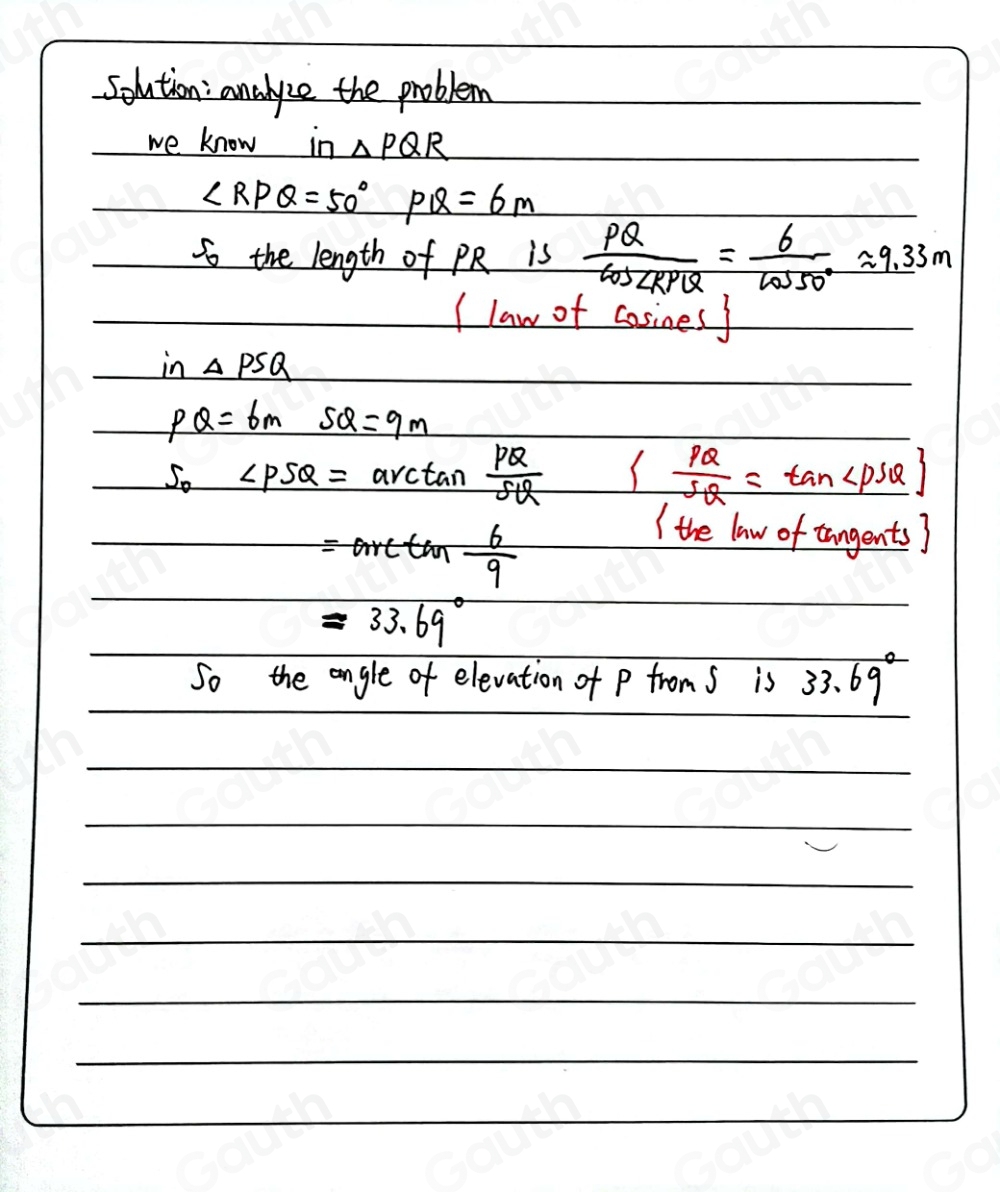 Solution: analyze the problem
we know in △PQR
∠RPQ = 50° PQ = 6m
So the length of PR is PQ/cos∠RPQ = 6/cos50° ≈ 9.33m
{ law of cosines }
in △ PSQ
PQ = 6m SQ = 9m
So ∠PSQ = arctan PQ/SQ { PQ/SQ = tan∠PSQ }
{ the law of tangents }
= arctan 6/9
= 33.69°
So the angle of elevation of P from S is 33.69°